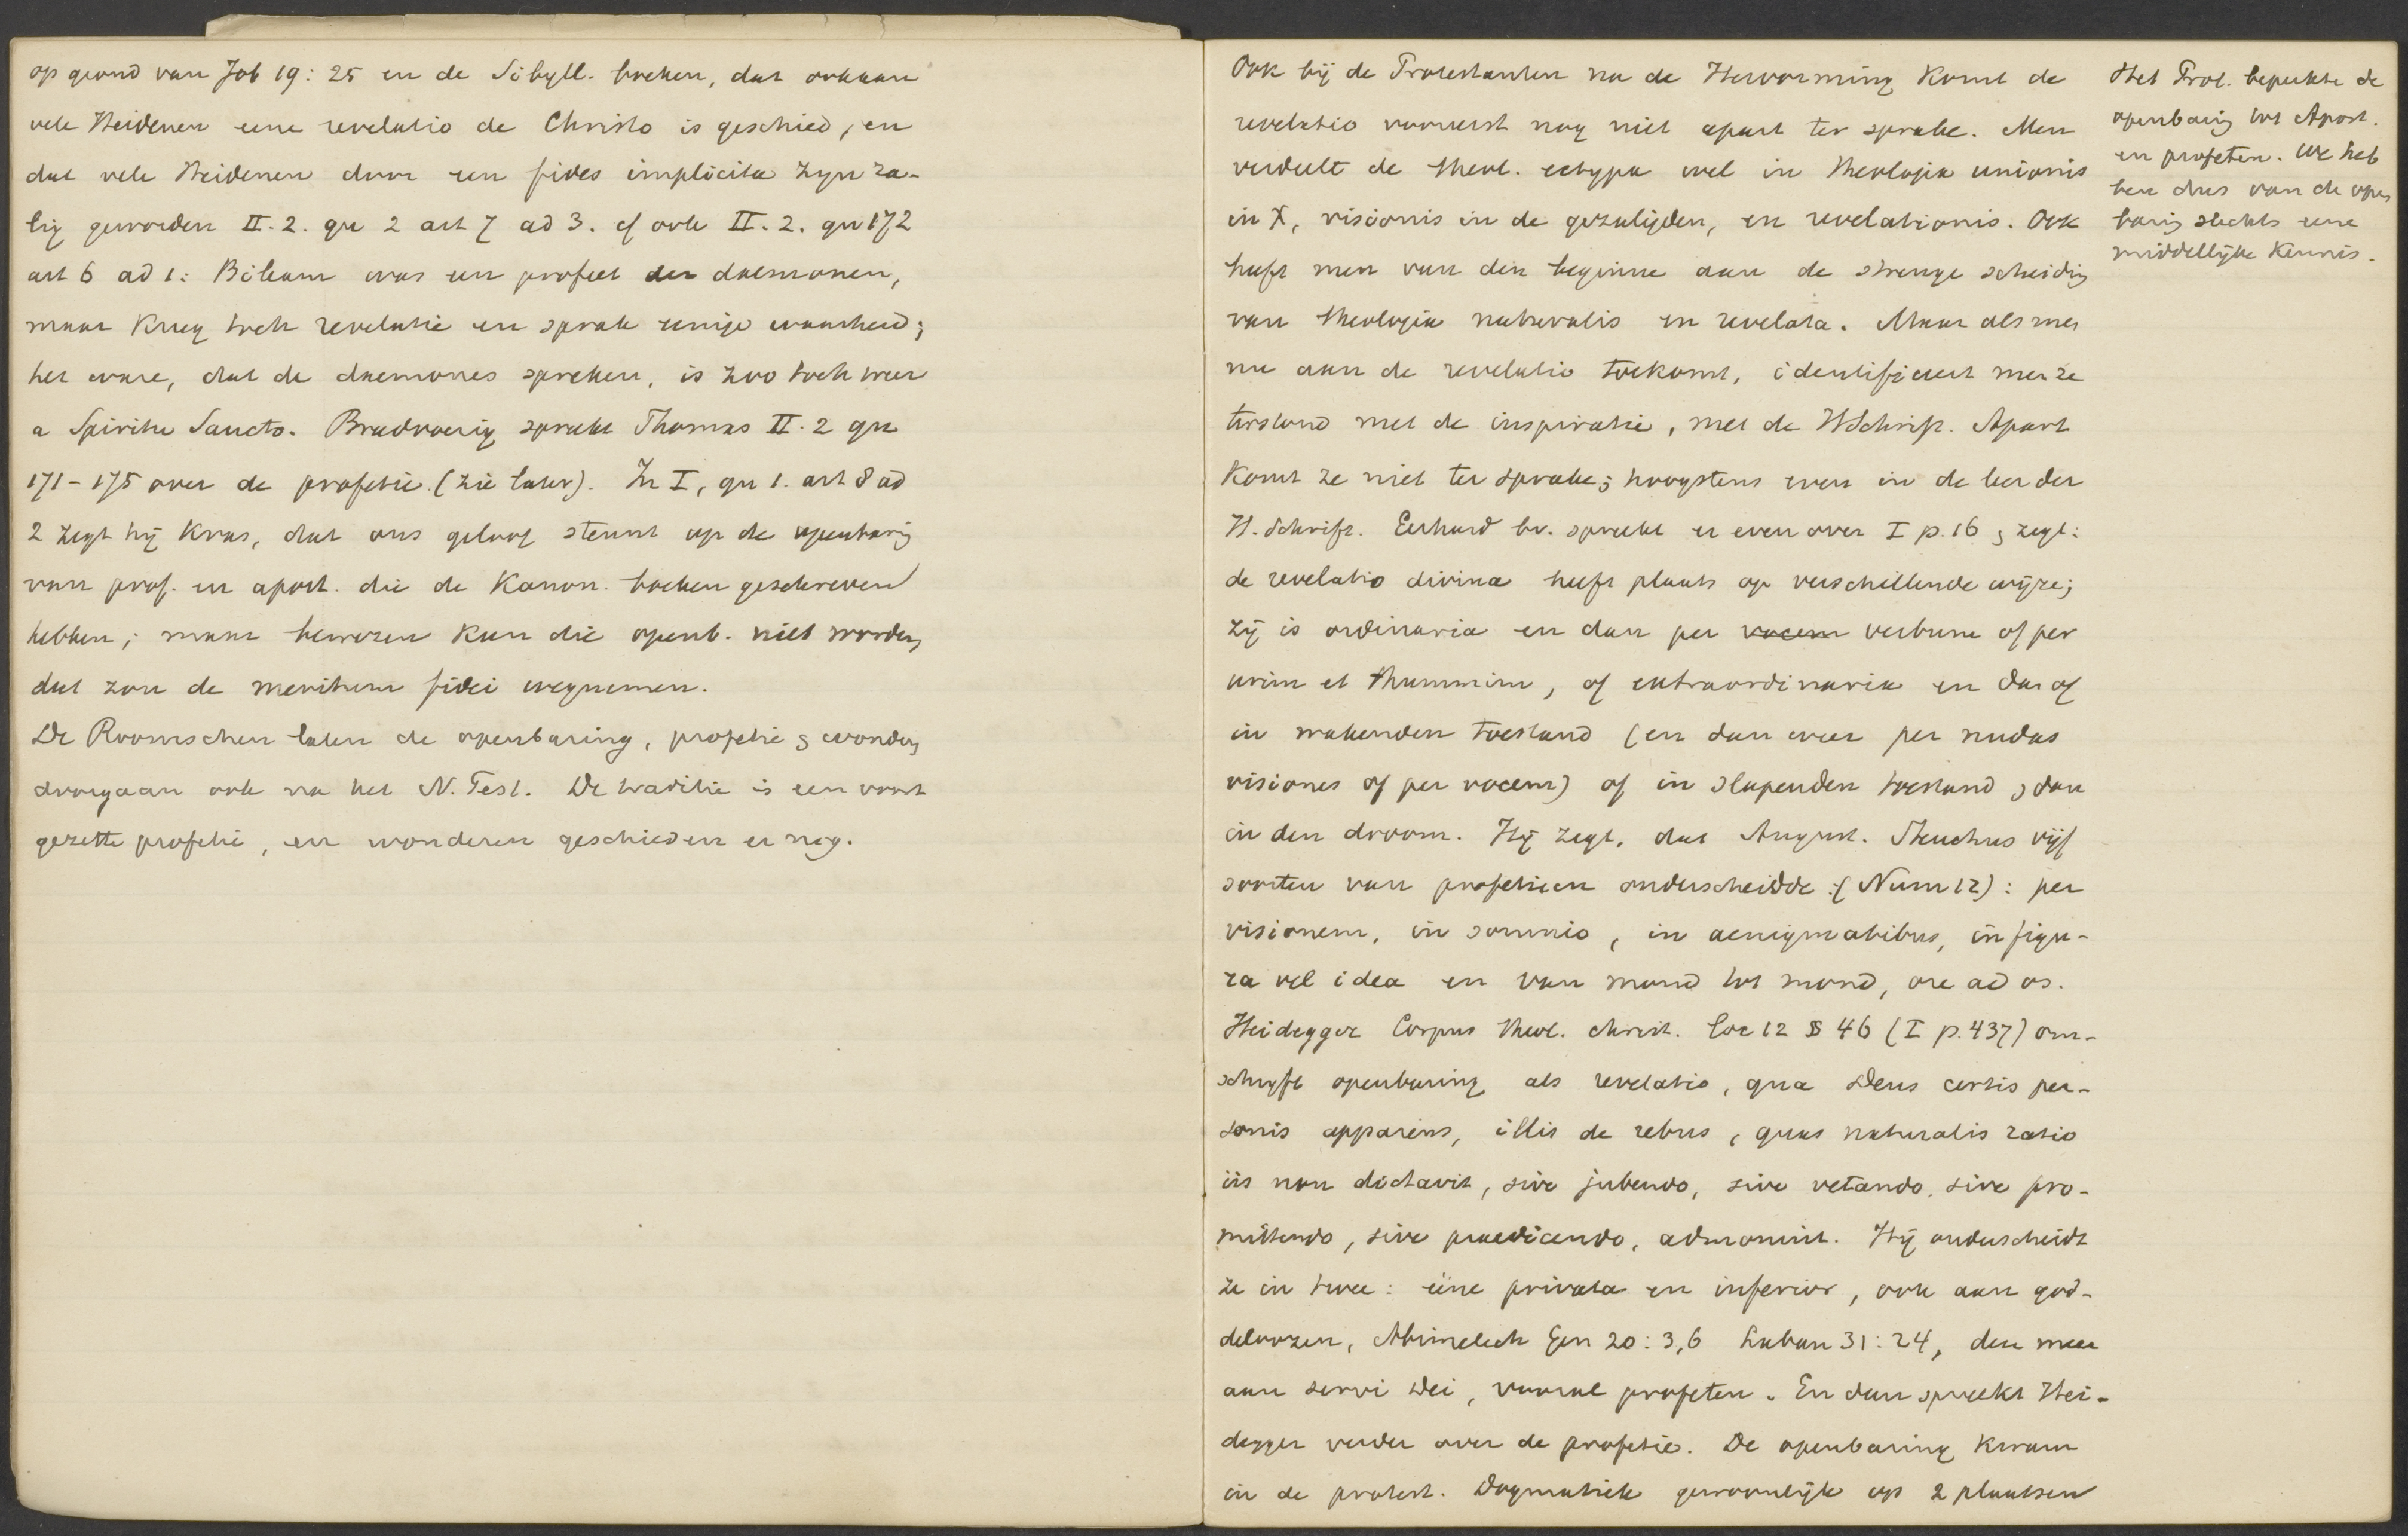 op grond van Job 19:25 en de Sibyll. boeken, dat ook aan
vele Heidenen eene revelatio de Christo is geschied, en
dat vele Heidenen door een fides implicita zijn za-
lig geworden II.2. qu 2 art 7 ad 3. cf ook II.2. qu 172
art 6 ad 1: Bileam was een profeet der daemonen,
maar kreeg toch revelatie en sprak eenige waarheid;
het ware, dat de daemones spreken, is zoo toch weer
a Spiritu Sancto. Breedvoerig spreekt Thomas II.2 qu
171-175 over de profetie. (zie later). In I, qu 1. art 8 ad
2 zegt hij kras, dat ons geloof steunt op de openbarig
van prof. en apost. die de Kanon. boeken geschreven
hebben; maar bewezen kan die openb. niet worden,
dat zou de meritum fidei wegnemen.
De Roomschen laten de openbaring, profetie & wonders
doorgaan ook na het N. Test. De traditie is een voort
gezette profetie, en wonderen geschieden er nog.
Ook bij de Protestanten na de Hervorming komt de
revelatio vooreerst nog niet apart ter sprake. Men
verdeelt de theol. ectypa wel in theologia unionis
in X, visionis in de gezaligden, en revelationis. Ook
heeft men van den beginne aan de strenge scheiding
van theologia naturalis en revelata. Maar als men
nu aan de revelatio toekomt, identificeert men ze
terstond met de inspiratie, met de HSchrift. Apart
komt ze niet ter sprake; hoogstens even in de leer der
H. Schrift. Gerhard bv. spreekt er even over I p. 16 & zegt:
de revelatio divina heeft plaats op verschillende wijze;
zij is ordinaria en dan per vocem verbum of per
urim et thummim, of extraordinaria en dan of
in wakenden toestand (en dan weer per nudas
visiones of per vocem) of in slapenden toestand, dan
in den droom. Hij zegt, dat August. Steuchus vijf
soorten van profetieen onderscheidde (Num 12): per
visionem, in somnio, in aenigmatibus, in figu-
ra vel idea en van mond tot mond, ore ad os.
Heidegger Corpus theol. christ. loc 12 § 46 (I p. 437) om-
schrijft openbaring als revelatio, qua Deus certis per-
sonis apparens, illis de rebus, quas naturalis ratio
iis non dictavit, sive jubendo, sive vetando, sive pro-
mittendo, sive praedicendo, admonuit. Hij onderscheidt
ze in twee: eene privata en inferior, ook aan god-
deloozen, Abimelech Gen 20:3,6 Laban 31:24, den meer
aan servi Dei, vooral profeten. En dan spreekt Hei-
degger verder over de profetie. De openbaring kwam
in de protest. Dogmatiek gewoonlijk op 2 plaatsen
Het Prot. beperkte de
openbaring tot Apost.
en profeten. We heb
ben dus van de open
baring slechts eene
middellijke kennis.